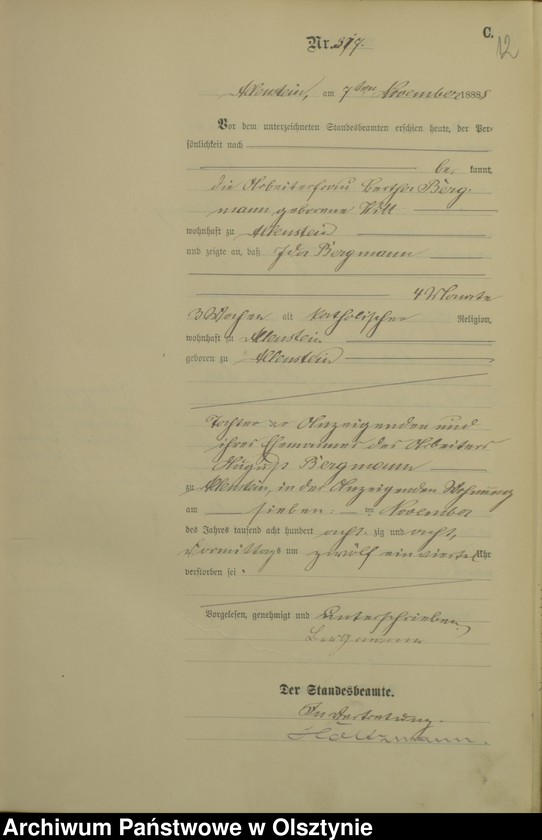 C.
12
Nr. 317.
Allenstein, am 7ten November 1888
Vor dem unterzeichneten Standesbeamten erschien heute, der Per-
sönlichkeit nach
be kannt,
die Arbeiterfrau Bertha Berg-
mann geborene Will
wohnhaft zu Allenstein
und zeigte an, daß Ida Bergmann
4 Monate
3 Wochen alt katholischer Religion,
wohnhaft zu Allenstein
geboren zu Allenstein
Tochter der Anzeigenden und
ihres Ehemannes des Arbeiters
August Bergmann
zu Allenstein, in der Anzeigenden Wohnung
am sieben ten November
des Jahres tausend acht hundert acht zig und acht,
Vormittags um zwölf einviertel Uhr
verstorben sei.
Vorgelesen, genehmigt und unterschrieben
Bergmann
Der Standesbeamte.
In Vertretung.
Holtzmann.
Archiwum Państwowe w Olsztynie